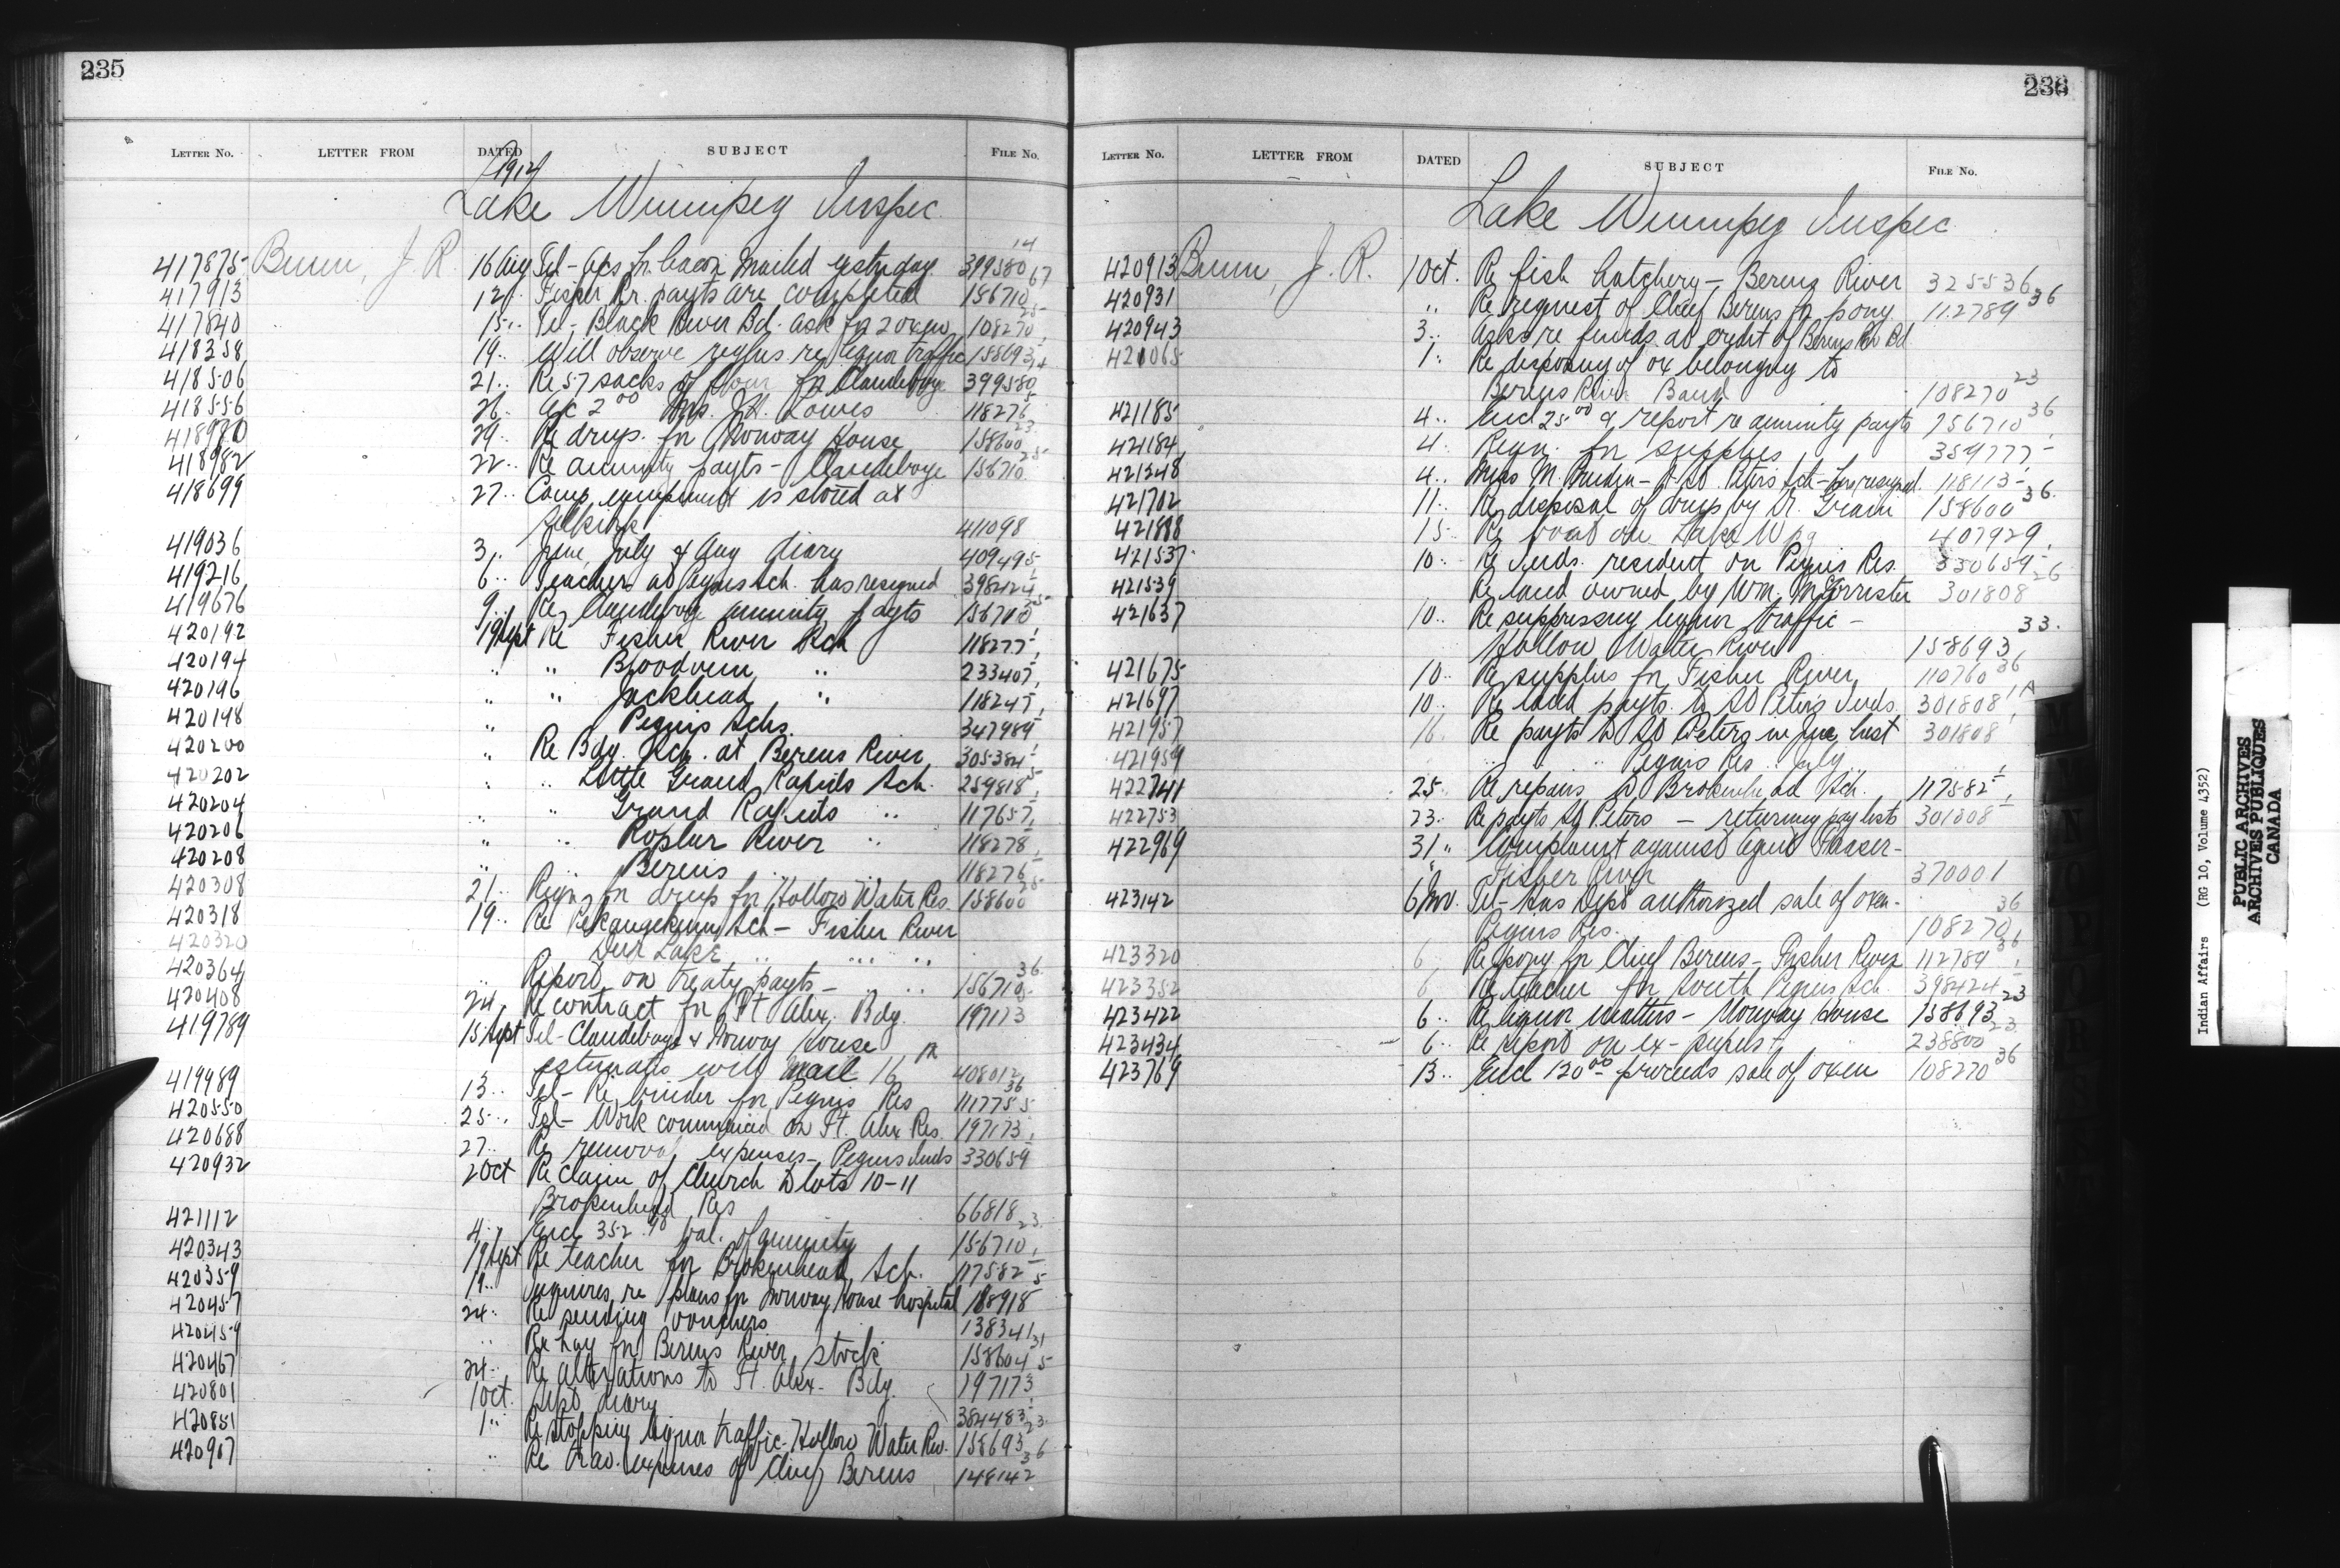 235
LETTER NO. LETTER FROM DATED SUBJECT FILE NO.
1912
Lake Winnipeg Inspec.
417875 Bunn, J. R. 16 Aug Tel - a/cs fr. bacon mailed yesterday 399580 14
417913 12 " Fisher Rr. payts are completed 156710 67
417840 15 " Tel - Black River Bd. ask for 2 oxen 108270 25
418358 19 " Will observe regl'ns re liquor traffic 158693
418506 21 " Re 57 sacks of flour for Clandeboye 399580
418556 26 " a/c 2 00 Mrs. J.H. Lowes 118276 5
418980 29 " Re drugs for Norway House 158600 23
418982 22 " Re annuity payts - Clandeboye 156710 25
418699 27 " Camp equipment is stored at
Selkirk 411098
419036 3 " June, July & Aug diary 409495
419216 6 " Teacher at Peguis Sch. has resigned 398424
419676 9 " Re Clandeboye annuity payts 156710 25
420192 19 Sept Re Fisher River Sch 118277
420194 " " Bloodvein " 233407
420196 " " Jackhead " 118247
420198 " Peguis Schs. 347989
420200 " Re Bdg. Sch. at Berens River 305384
420202 " " Little Grand Rapids Sch. 259818 5
420204 " " Grand Rapids " 117657
420206 " " Poplar River " 118278
420208 " " Berens " " 118276
420308 21 " Reqn. for drugs for Hollow Water Res. 158600 25
420318 19 " Re Pekangekum Sch - Fisher River
420320 Deer Lake " " "
420364 " Report on treaty payts - " " 156710 36
420408 24 " Re contract for Ft Alex. Bdg. 197173
419789 15 Sept Tel - Clandeboye & Norway House
estimates will mail 16 408012
419989 13 " Tel - Re binder for Peguis Res 111775 36
420550 25 " Tel - Work commenced on Ft. Alex Res. 197173
420688 27 " Re removal expenses - Peguis Inds 330659
420932 2 Oct Re Claim of Church to lots 10-11
Brokenhead Res 66818
421112 4 " Encl 352.98 bal. of annuity 156710 23
420343 19 Sept Re teacher for Brokenhead Sch. 117582
420359 19 " Inquires re plans for Norway House hospital 188918 5
420457 24 " Re sending vouchers 138341
420459 " Re hay for Berens River stock 158604 31
420467 24 " Re alterations to Ft. Alex. Bdg. 197173 5
420801 1 Oct. Sept diary 384483
420851 1 " Re stopping liquor traffic - Hollow Water Riv. 158693 23
420907 " Re trav. expenses of Chief Berens 148142 36
236
LETTER NO. LETTER FROM DATED SUBJECT FILE NO.
Lake Winnipeg Inspec
420913 Bunn, J. R. 1 Oct. Re fish hatchery - Berens River 325536
420931 " Re request of Chief Berens for pony 112789 36
420943 3 " Asks re funds at credit of Berens Riv Bd
421065 1 " Re disposing of ox belonging to
Berens River Band 108270 23
421185 4 " Encl 25.00 & report re annuity payts 156710 36
421184 4 " Reqn. for supplies 359777
421248 4 " Miss M. Prudin - St. Peters Sch - has resigned 118113
421702 11 " Re disposal of drugs by Dr. Grain 158600 36
421888 15 " Re boat on Lake Wpg 407929
421537 10 " Re Inds. resident on Peguis Res. 330659
421539 Re land owned by Wm. McForrister 301808 26
421637 10 " Re suppressing liquor traffic -
Hollow Water River 158693 33
421675 10 " Re supplies for Fisher River 110760 36
421697 10 " Re land payts. to St Peters Inds. 301808 1A
421957 16 " Re payts to St Peters in June last 301808
421959 " " Peguis Res " July
422741 25 " Re repairs to Brokenhead Sch. 117582
422753 23 " Re payts St Peters - returning paylists 301808
422969 31 " Complaint against agent
Fisher River 370001
423142 6 Nov. Tel - Has Dept authorized sale of oxen -
Peguis Res. 108270 36
423320 6 " Re pony for Chief Berens - Fisher River 112789 36
423352 6 " Re teacher for South Peguis Sch. 398424
423422 6 " Re liquor matters - Norway House 158693 23
423434 6 " Re report on ex-pupils 238800 23
423769 13 " Encl 120.00 proceeds sale of oxen 108270 36
Indian Affairs (RG 10, Volume 4352)
PUBLIC ARCHIVES
ARCHIVES PUBLIQUES
CANADA